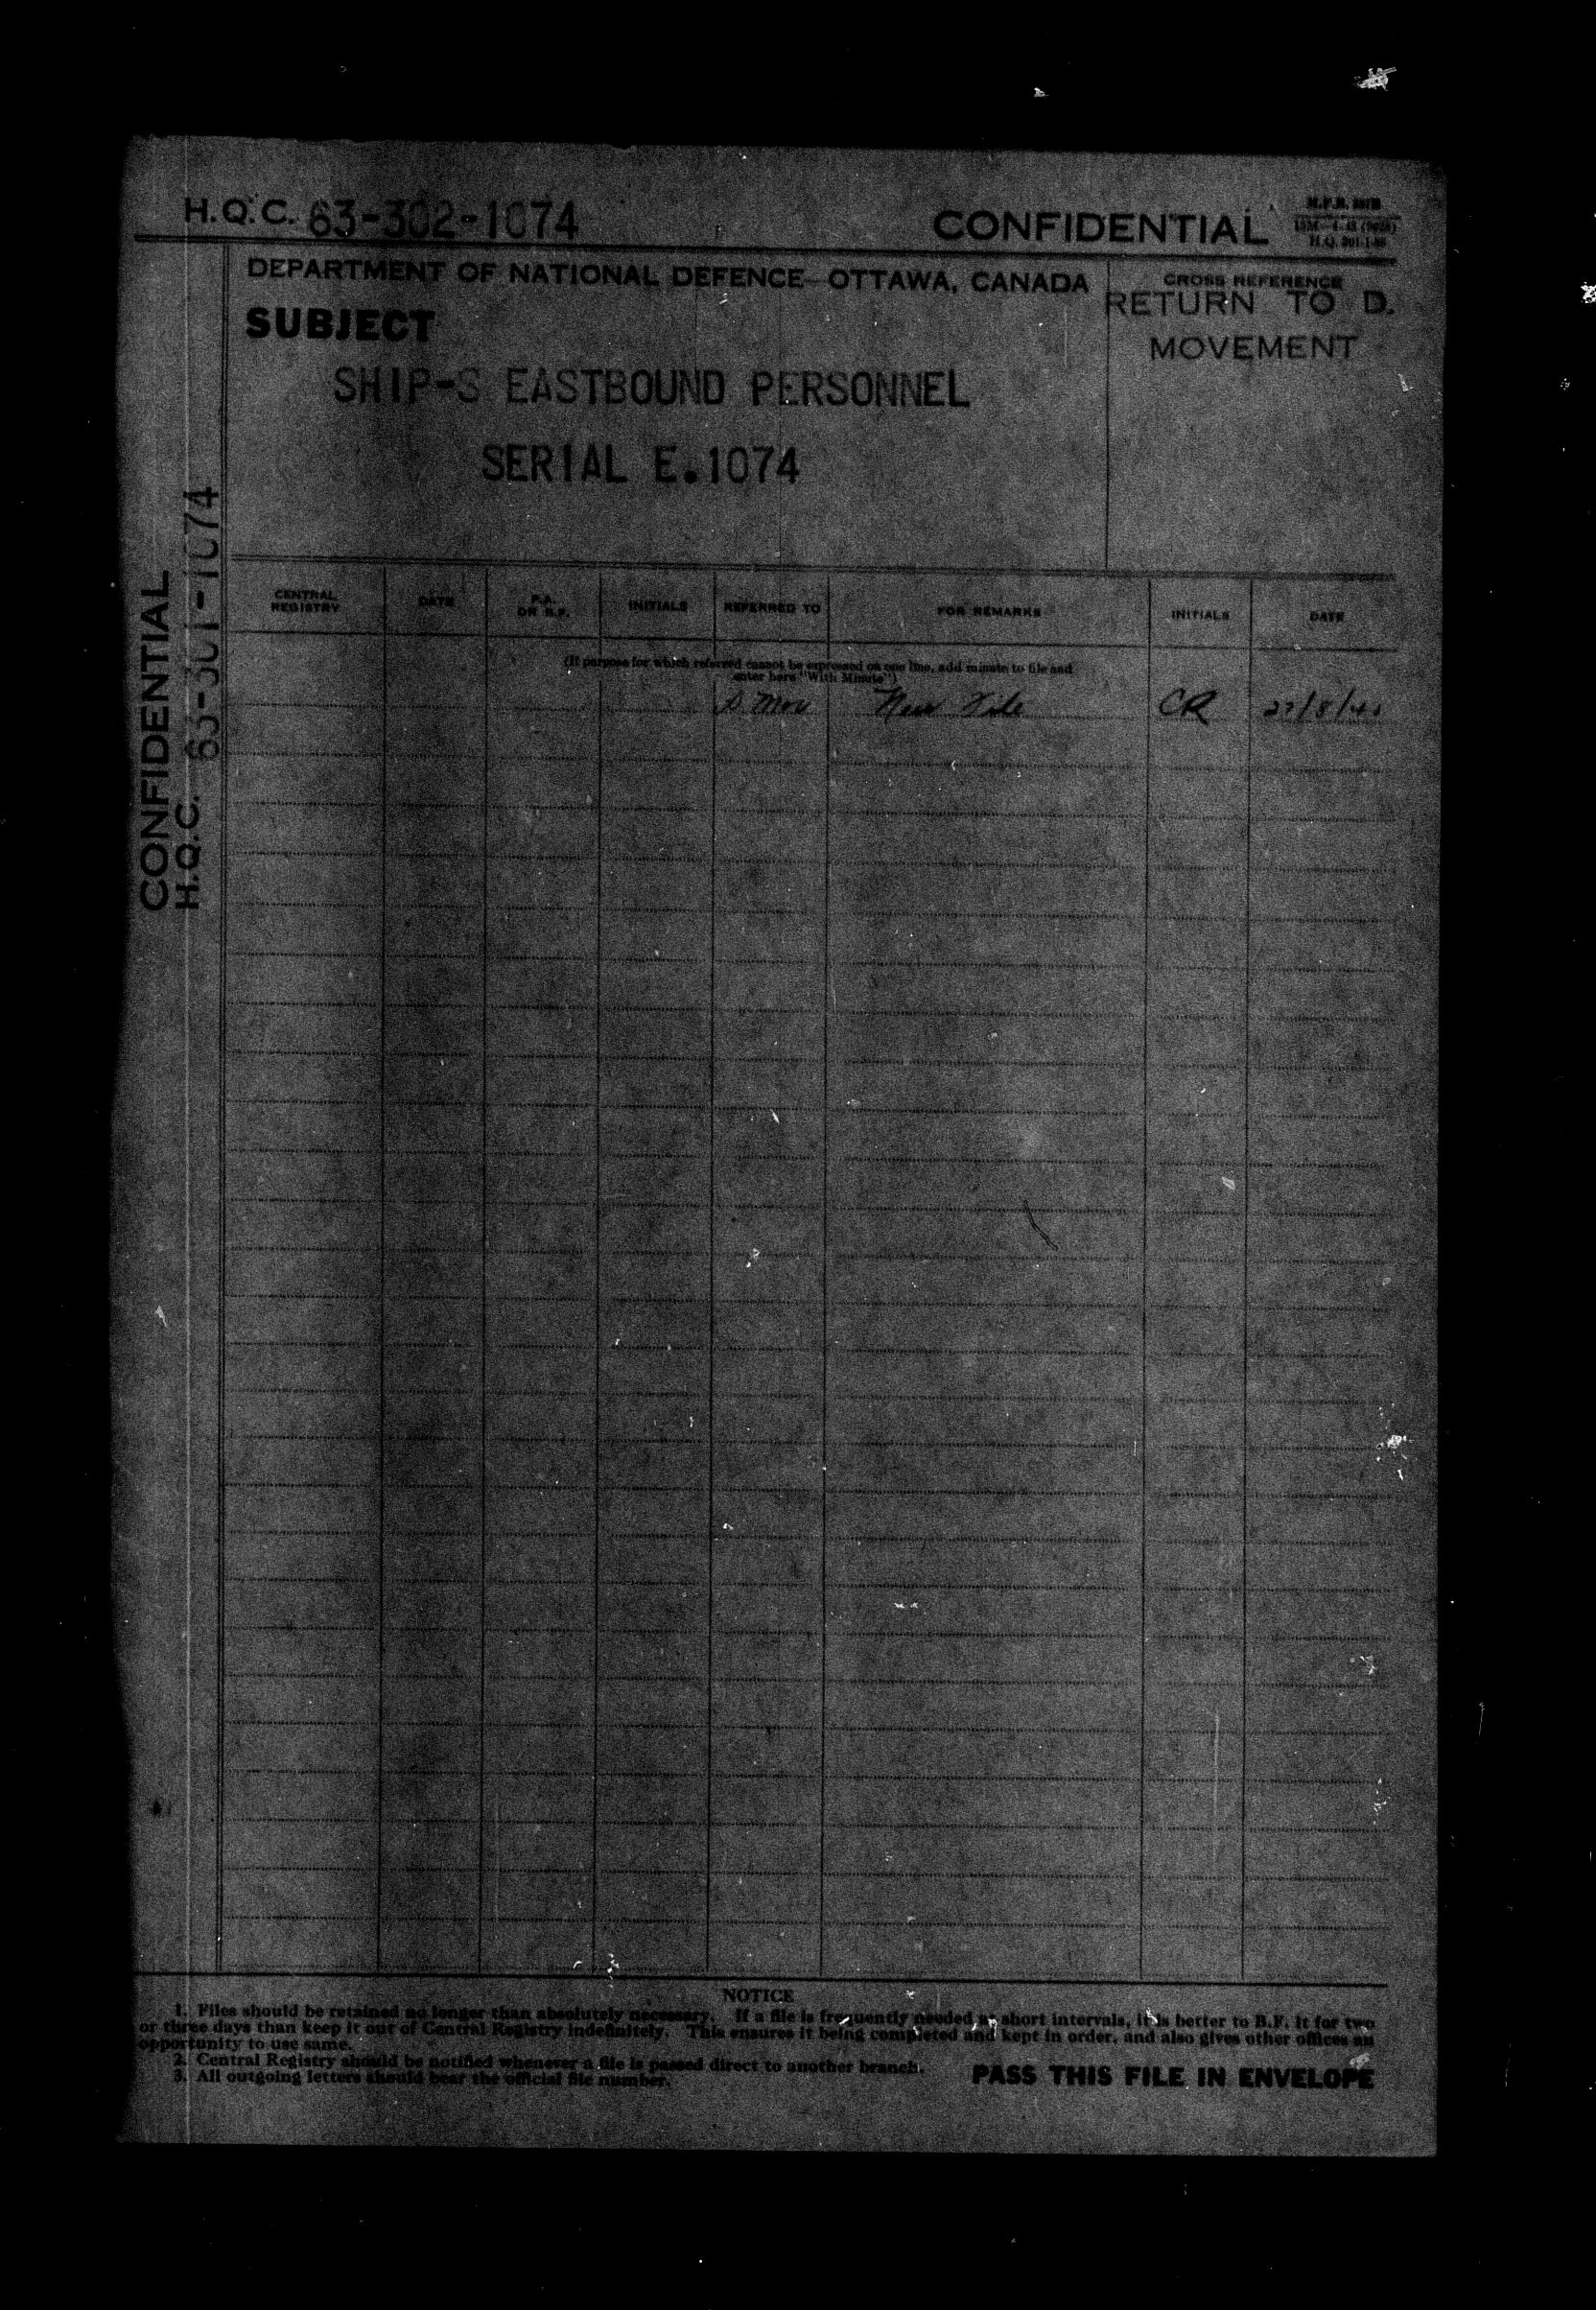 H.Q.C. 63-302-1074
CONFIDENTIAL
DEPARTMENT OF NATIONAL DEFENCE—OTTAWA, CANADA
CROSS REFERENCE
RETURN TO D.
MOVEMENT
SUBJECT
SHIP-S EASTBOUND PERSONNEL
SERIAL E.1074
CONFIDENTIAL
H.Q.C. 63-301-1074
CENTRAL REGISTRY
DATE
P.A. OR B.F.
INITIALS
REFERRED TO
FOR REMARKS
INITIALS
DATE
(If purpose for which referred cannot be expressed on one line, add minute to file and
enter here "With Minute")
D Mov New File CR
NOTICE
1. Files should be retained no longer than absolutely necessary. If a file is frequently needed at short intervals, it is better to B.F. it for two
or three days than keep it out of Central Registry indefinitely. This ensures it being completed and kept in order, and also gives other offices an
opportunity to use same.
2. Central Registry should be notified whenever a file is passed direct to another branch.
3. All outgoing letters should bear the official file number.
PASS THIS FILE IN ENVELOPE